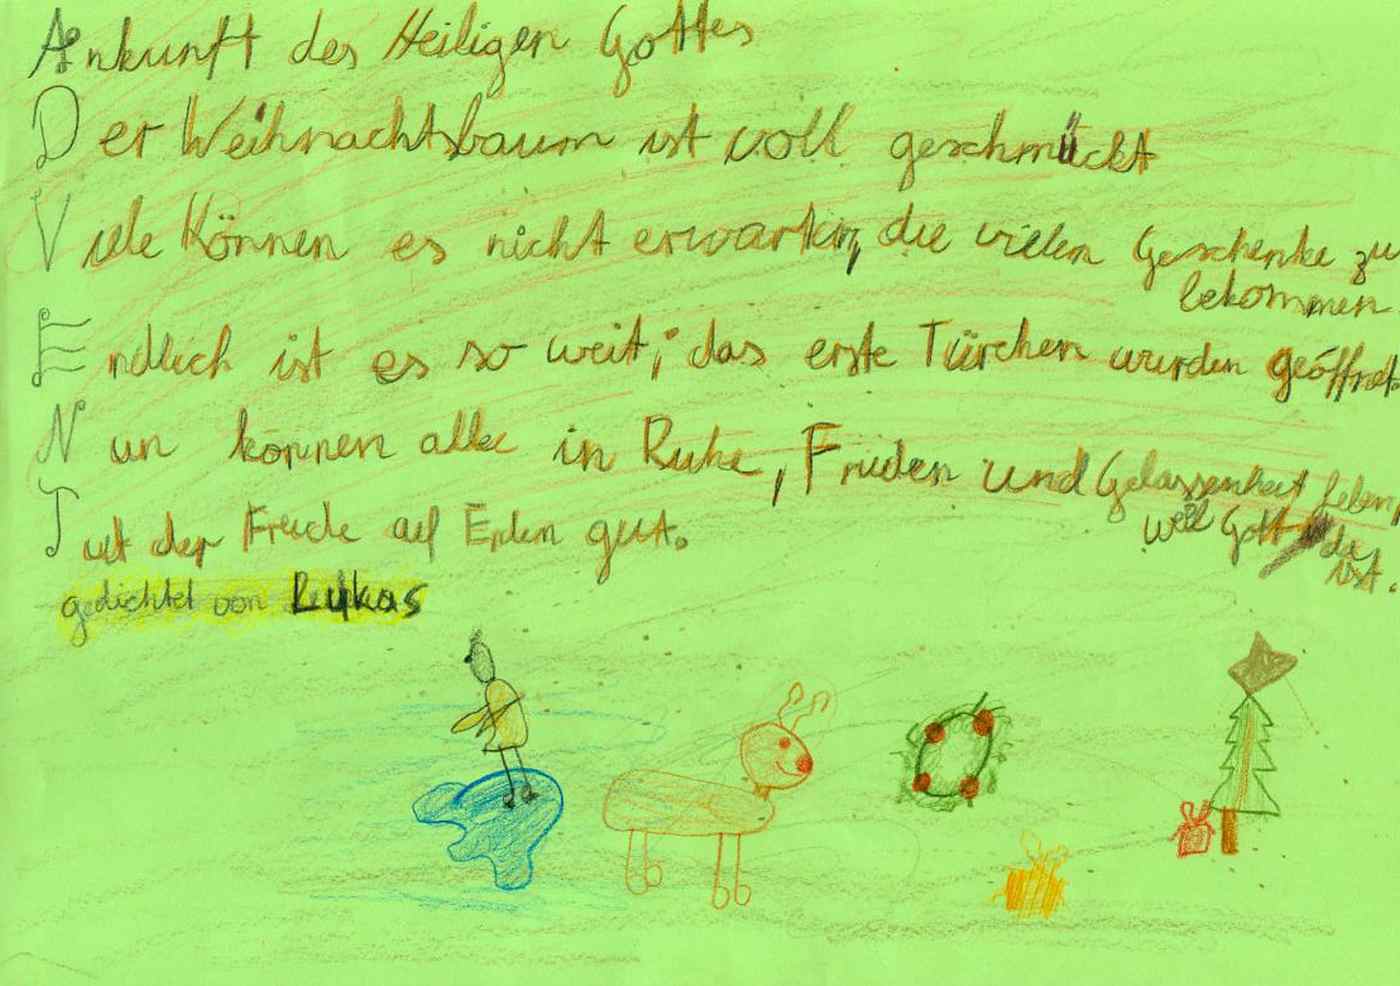 Ankunft des Heiligen Gottes
Der Weihnachtsbaum ist voll geschmückt
Viele Können es nicht erwarten, die vielen Geschenke zu
bekommen
Endlich ist es so weit, das erste Türchen wurden geöffnet.
Nun können alle in Ruhe, Frieden und Gelassenheit leben
weil Gott da
ist.
Tut der Freude auf Erden gut.
gedichtet von Lukas